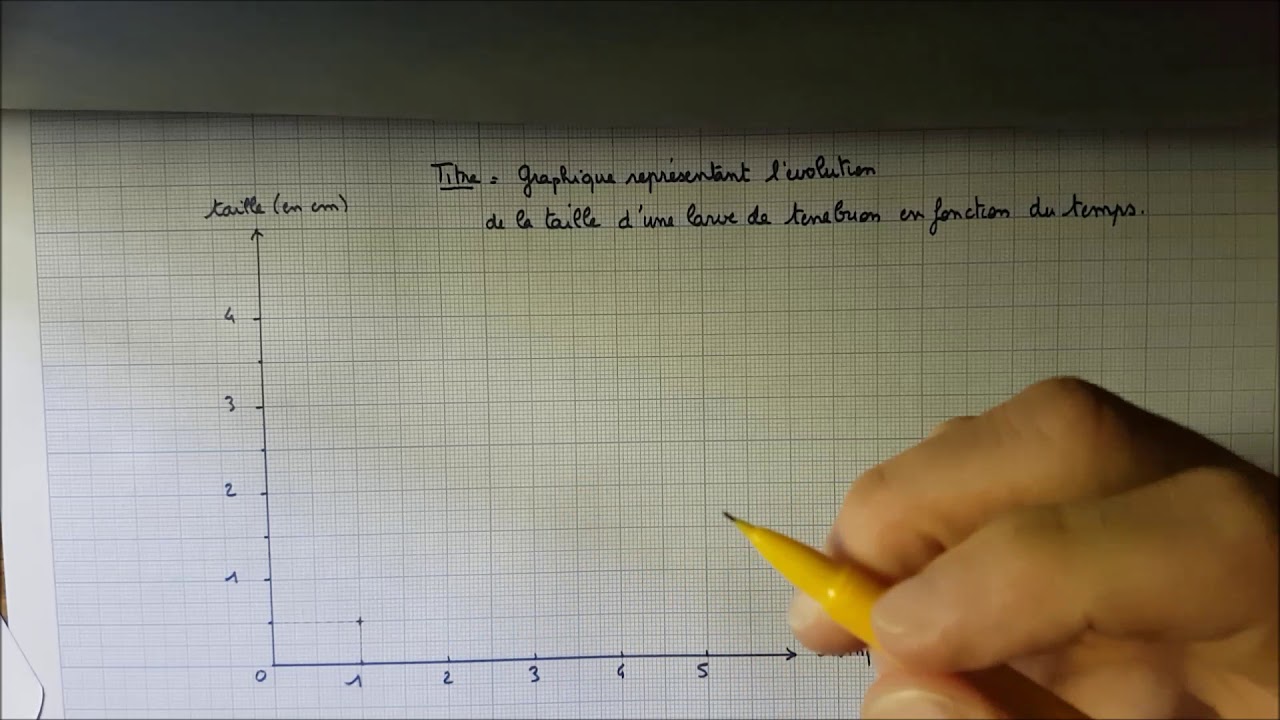 Titre = Graphique représentant l'évolution
de la taille d'une larve de tenebrion en fonction du temps.
taille (en cm)
4
3
2
1
0 1 2 3 4 5